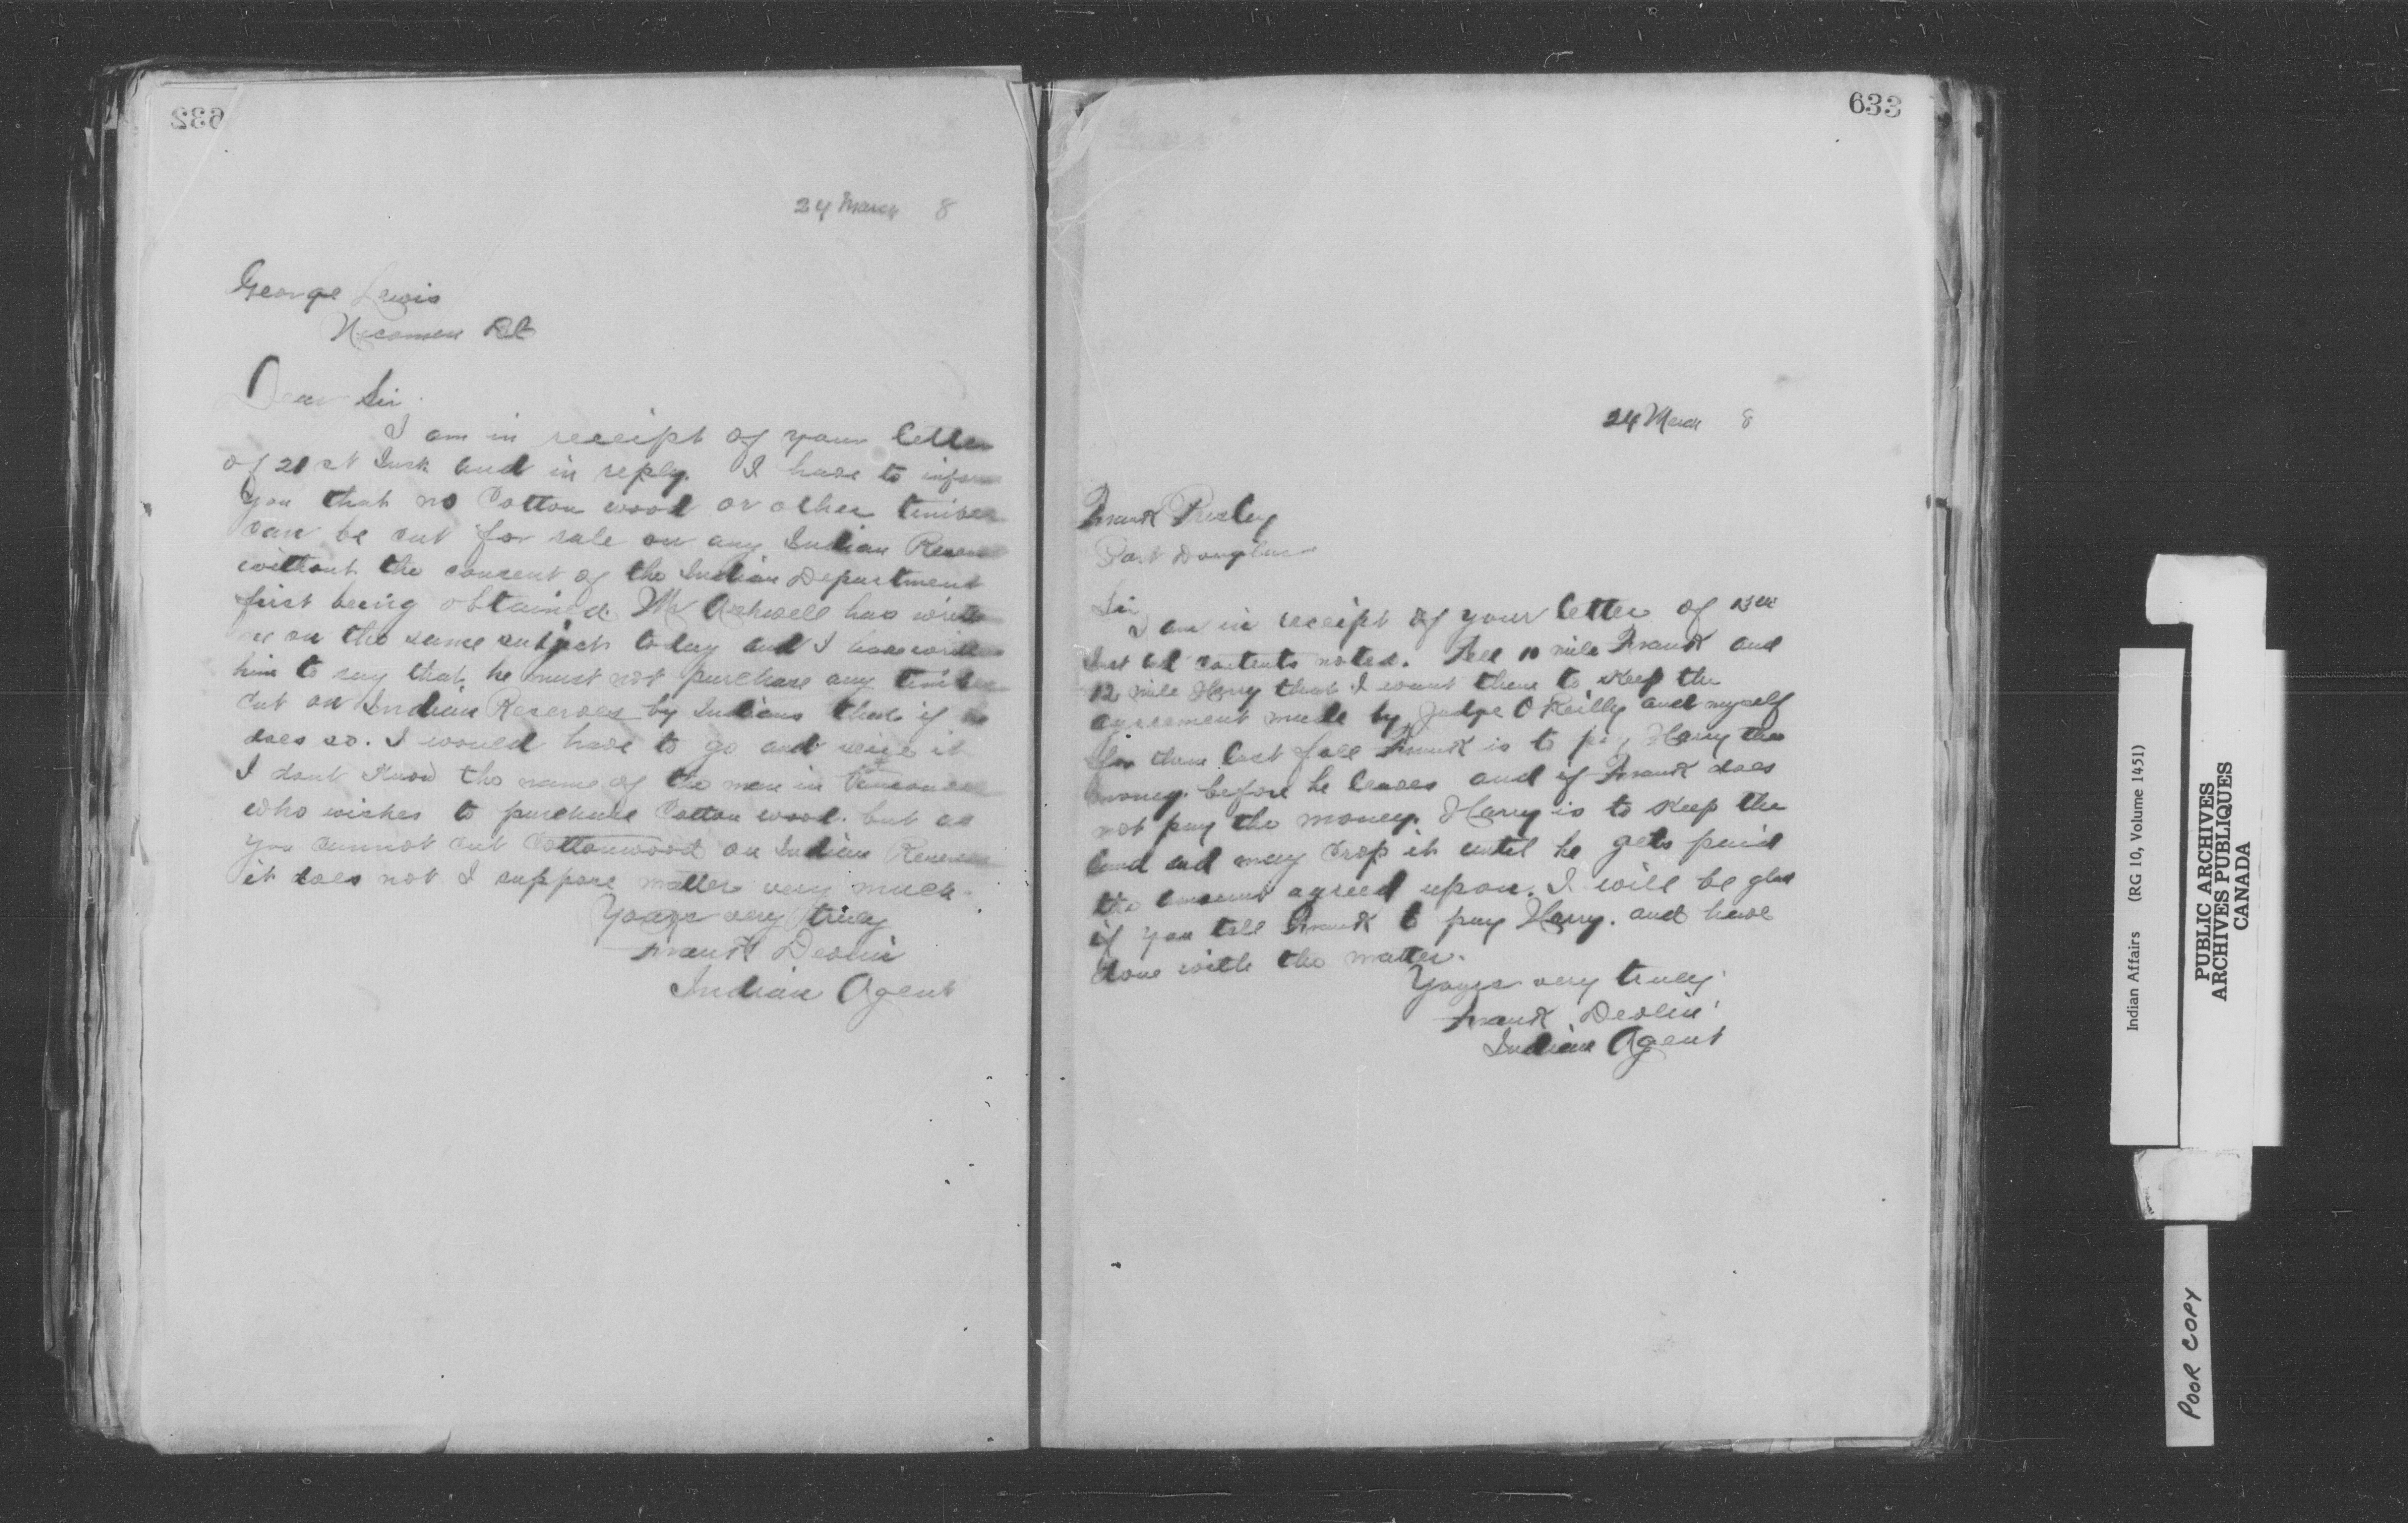 632
24 March 8
George Lewis
Nicomen
Dear Sir.
I am in receipt of your letter
of 21st Inst and in reply. I have to inform
you that no Cotton wood or other timber
can be cut for sale on any Indian Reserve
without the consent of the Indian Department
first being obtained. Mr Ashwell has
me on the same subject today and I have
him to say that he must not purchase any timber
cut on Indian Reserves by Indians that if he
does so. I would have to go and seize it
I dont Know the name of the man in Vancouver
who wishes to purchase Cotton wood. but as
you cannot cut Cottonwood on Indian Reserves
it does not I suppose matter very much.
Yours very truly
Frank Devlin
Indian Agent
633
24 March 8
Frank
Port Douglas
Sir
I am in receipt of your letter of 13th
Inst and contents noted. Tell 10 mile Frank and
12 mile Harry that I want them to Keep the
agreement made by Judge O Reilly and myself
for them last fall Frank is to pay Harry the
money. before he leaves and if Frank does
not pay the money. Harry is to Keep the
land and may crop it until he gets paid
the amount agreed upon. I will be glad
if you tell Frank to pay Harry. and have
done with the matter.
Yours very truly
Frank Devlin
Indian Agent
Indian Affairs (RG 10, Volume 1451)
PUBLIC ARCHIVES
ARCHIVES PUBLIQUES
CANADA
POOR COPY